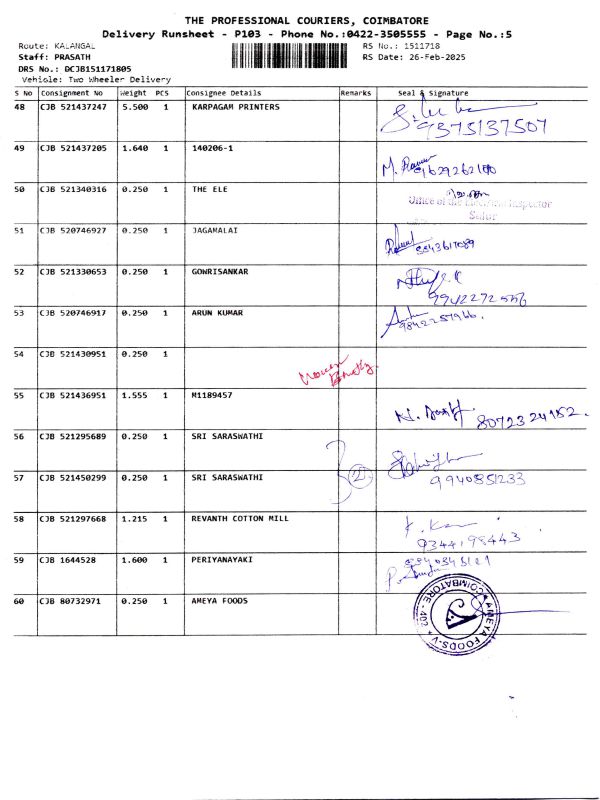 THE PROFESSIONAL COURIERS, COIMBATORE
Delivery Runsheet - P103 - Phone No.:0422-3505555 - Page No.:5
Route: KALANGAL RS No.: 1511718
Staff: PRASATH RS Date: 26-Feb-2025
DRS No.: DCJB151171805
Vehicle: Two Wheeler Delivery
S No Consignment No Weight PCS Consignee Details Remarks Seal & Signature
48 CJB 521437247 5.500 1 KARPAGAM PRINTERS
9375137507
49 CJB 521437205 1.640 1 140206-1
M.
9629262100
50 CJB 521340316 0.250 1 THE ELE
Office of the Electrical Inspector
51 CJB 520746927 0.250 1 JAGAMALAI
52 CJB 521330653 0.250 1 GOWRISANKAR
9942272556
53 CJB 520746917 0.250 1 ARUN KUMAR
9842257966.
54 CJB 521430951 0.250 1
55 CJB 521436951 1.555 1 M1189457
8072324152.
56 CJB 521295689 0.250 1 SRI SARASWATHI
57 CJB 521450299 0.250 1 SRI SARASWATHI
2
9940851233
58 CJB 521297668 1.215 1 REVANTH COTTON MILL
9344198443
59 CJB 1644528 1.600 1 PERIYANAYAKI
60 CJB 80732971 0.250 1 AMEYA FOODS
AMEYA FOODS
COIMBATORE - 402